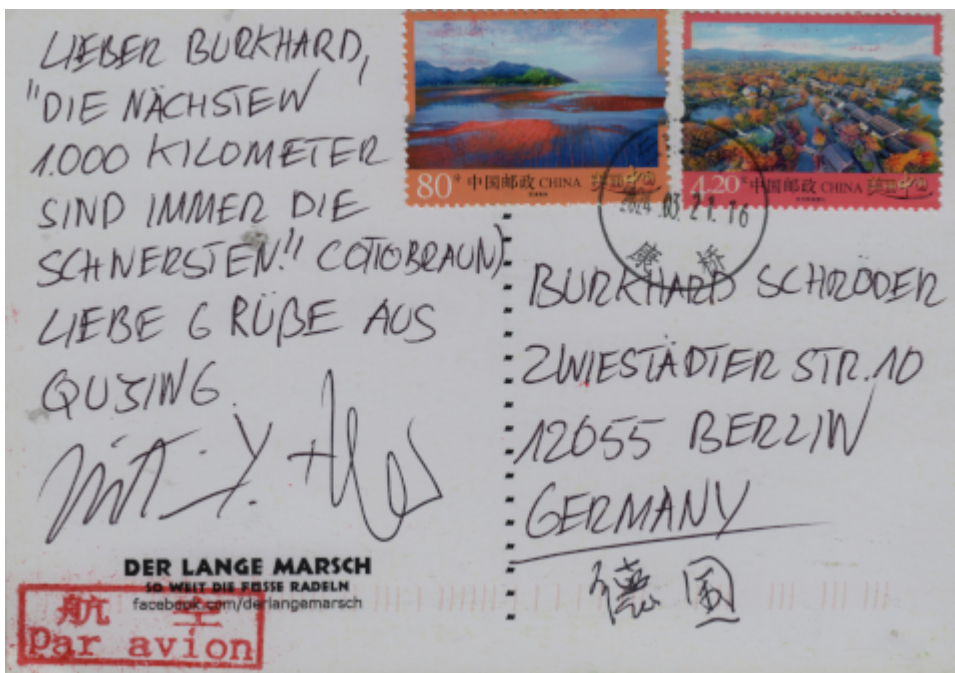 LIEBER BURKHARD,
"DIE NÄCHSTEN
1.000 KILOMETER
SIND IMMER DIE
SCHWERSTEN!" (OTTO BRAUN)
LIEBE GRÜßE AUS
QUJING.
DER LANGE MARSCH
SO WEIT DIE FÜSSE RADELN
facebook.com/derlangemarsch
航空
Par avion
80分 中国邮政 CHINA 美丽中国
4.20元 中国邮政 CHINA 美丽中国
2024.03.21.16
康桥
BURKHARD SCHRÖDER
ZWIESTÄDTER STR. 10
12055 BERLIN
GERMANY
德国